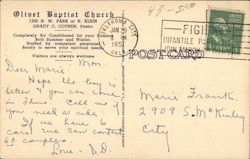 Olivet Baptist Church
1200 N. W. PARK at N. KLEIN
GRADY C. COTHEN, Pastor
Completely Air Conditioned for your
Both Summer and Winter.
Staffed by competent personnel
Ready to serve your spiritual needs
Visitors are always welcome
OKLAHOMA CITY
JAN
1952
OKLA.
FIGHT
INFANTILE
POST CARD
Mon.
Dear Marie
Hope the boy
better & you can come
in there. Call me if
you need a ride.
If we have 6
can! we can contact
60 couples.
Love - D.D.
Marie Frank
2909 S. McKinley
City